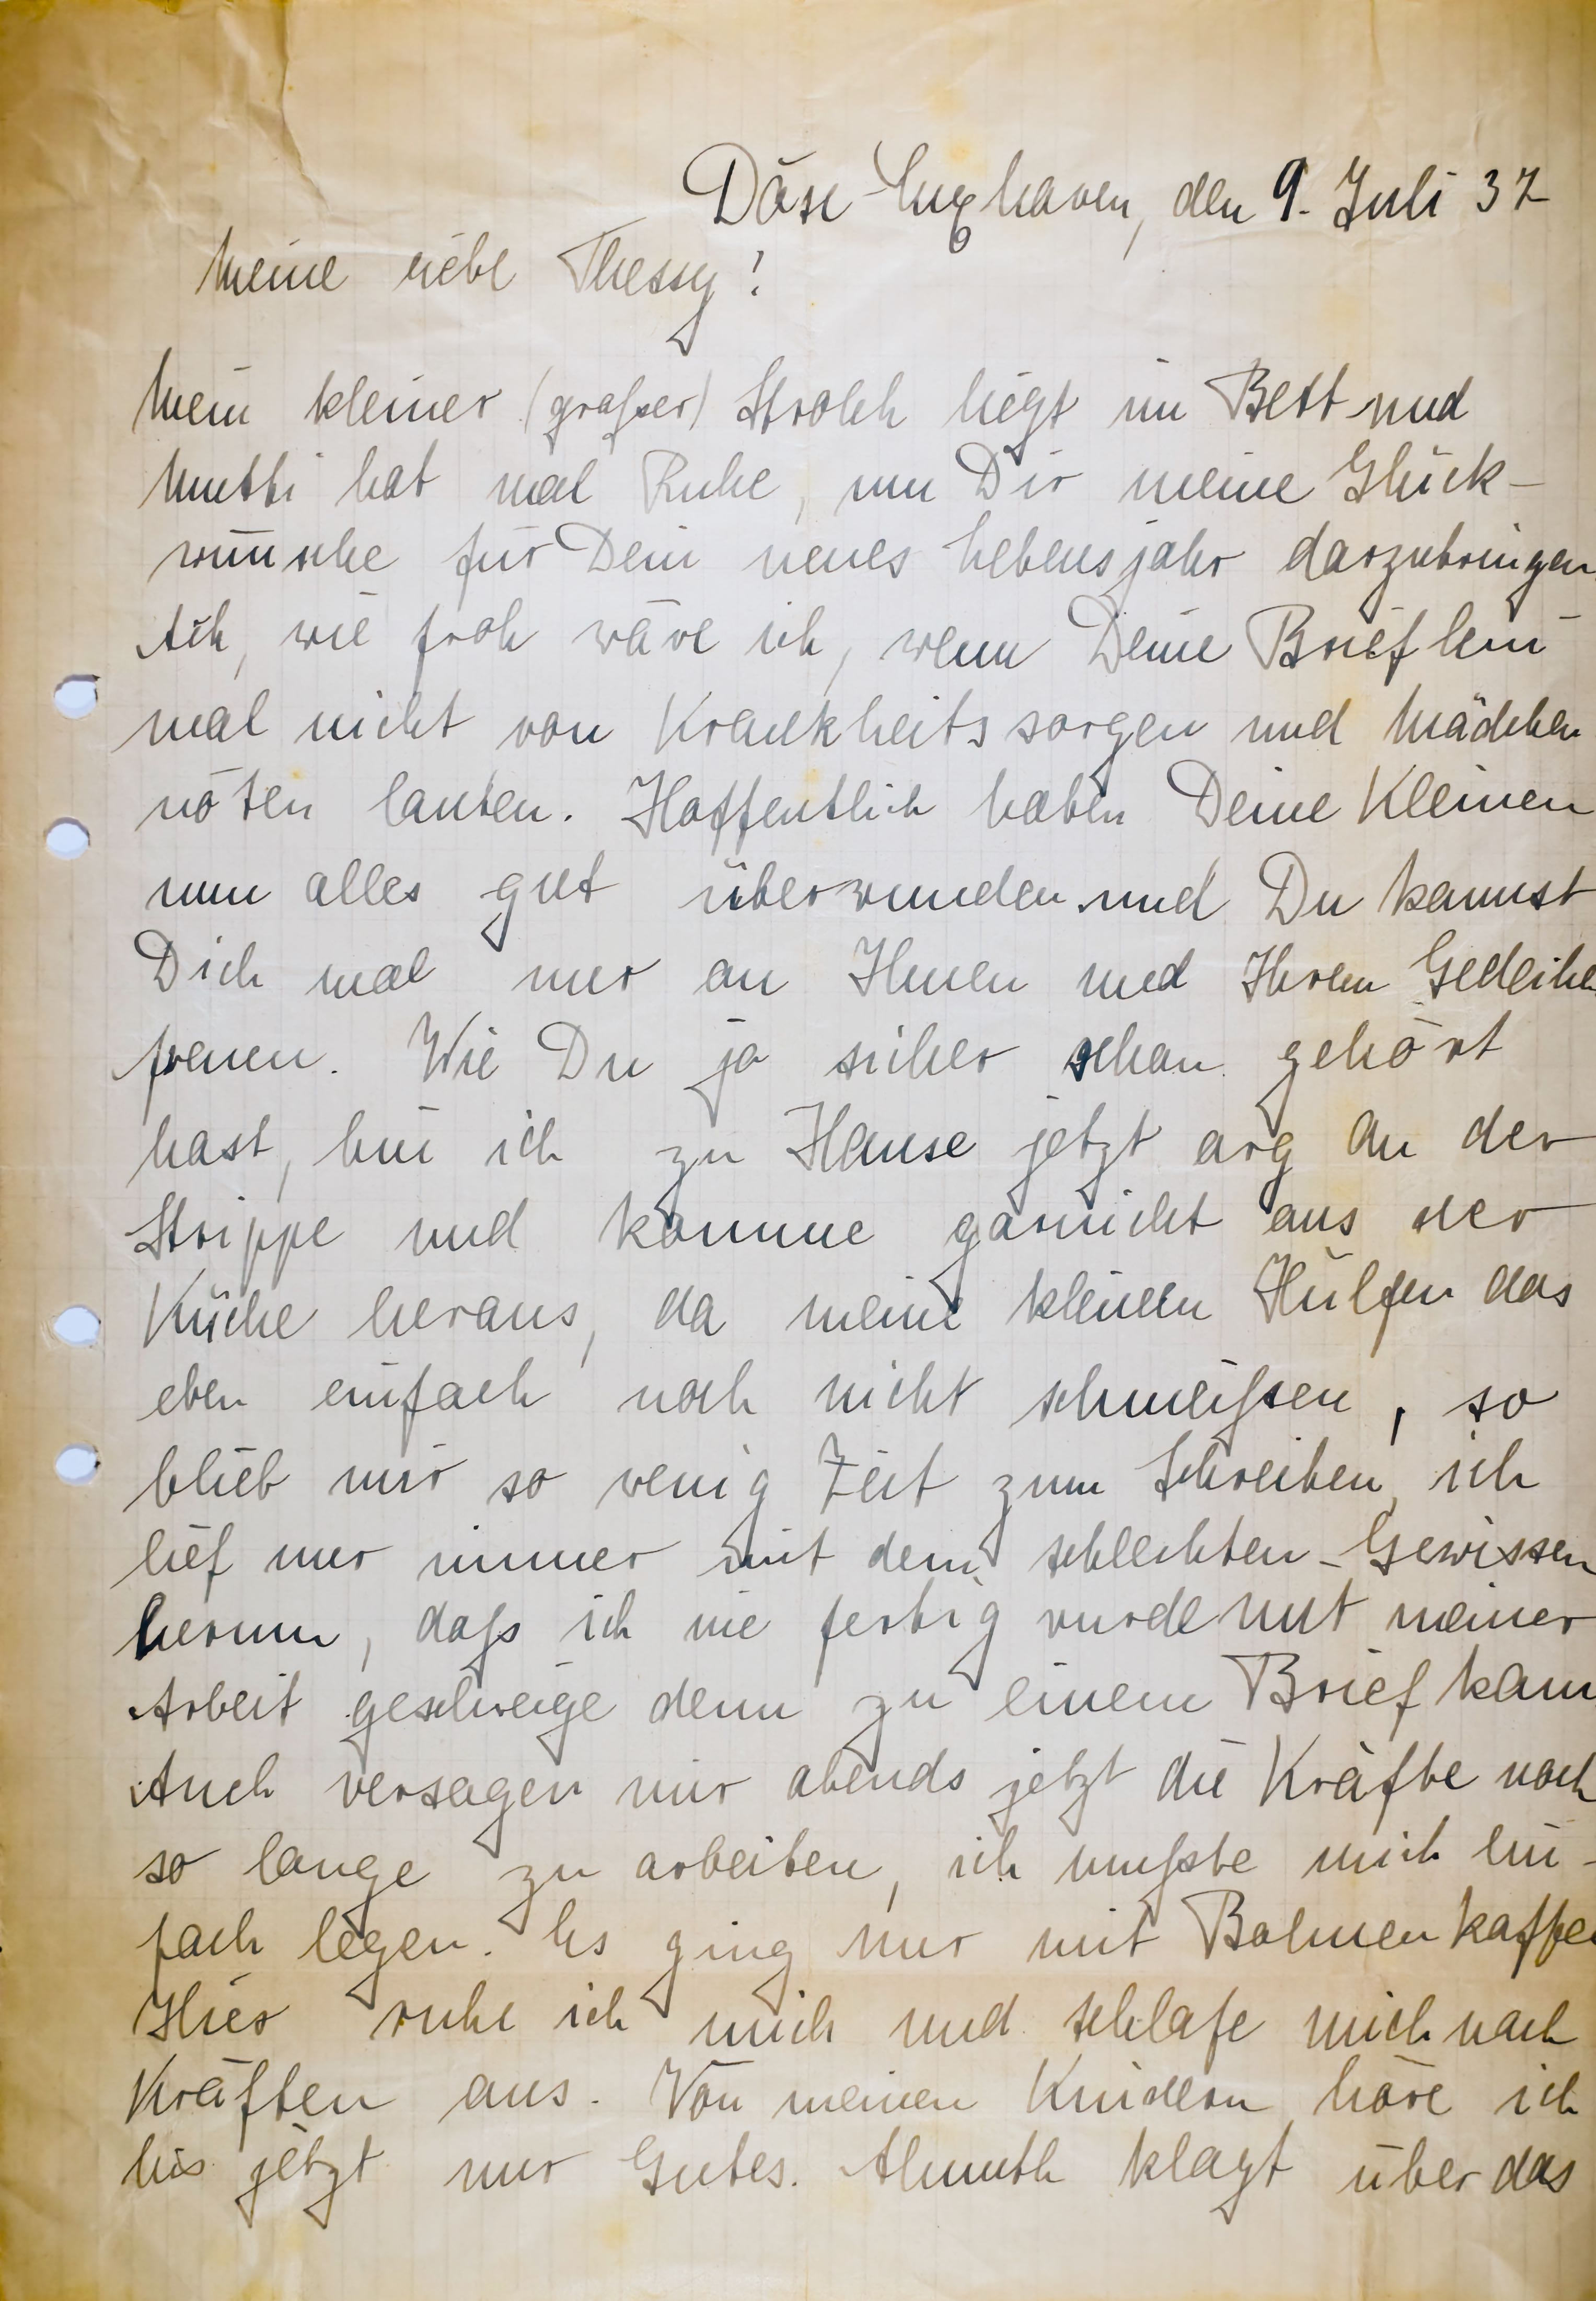 Döse-Cuxhaven, den 9. Juli 37
Meine liebe Thessy!
Mein kleiner (großer) Strolch liegt im Bett und
Mutti hat mal Ruhe, um Dir meine Glück-
wünsche für Dein neues Lebensjahr darzubringen
Ach, wie froh wäre ich, wenn Deine Brieflein
mal nicht von Krankheitssorgen und Mädchen
nöten lauten. Hoffentlich haben Deine Kleinen
nun alles gut überwunden und Du kannst
Dich mal nur an Ihnen und Ihrem Gedeihen
freuen. Wie Du ja sicher schon gehört
hast, bin ich zu Hause jetzt arg an der
Strippe und komme garnicht aus der
Küche heraus, da meine kleinen Hülfen das
eben einfach noch nicht schmeißen, so
blieb mir so wenig Zeit zum Schreiben, ich
lief nur immer mit dem schlechten Gewissen
herum, daß ich nie fertig wurde mit meiner
Arbeit geschweige denn zu einem Brief kam
Auch versagen mir abends jetzt die Kräfte noch
so lange zu arbeiten, ich mußte mich ein-
fach legen. Es ging nur mit Bohnenkaffee
Hier ruhe ich mich und schlafe mich nach
Kräften aus. Von meinen Kindern höre ich
bis jetzt nur Gutes. Almuth klagt über das